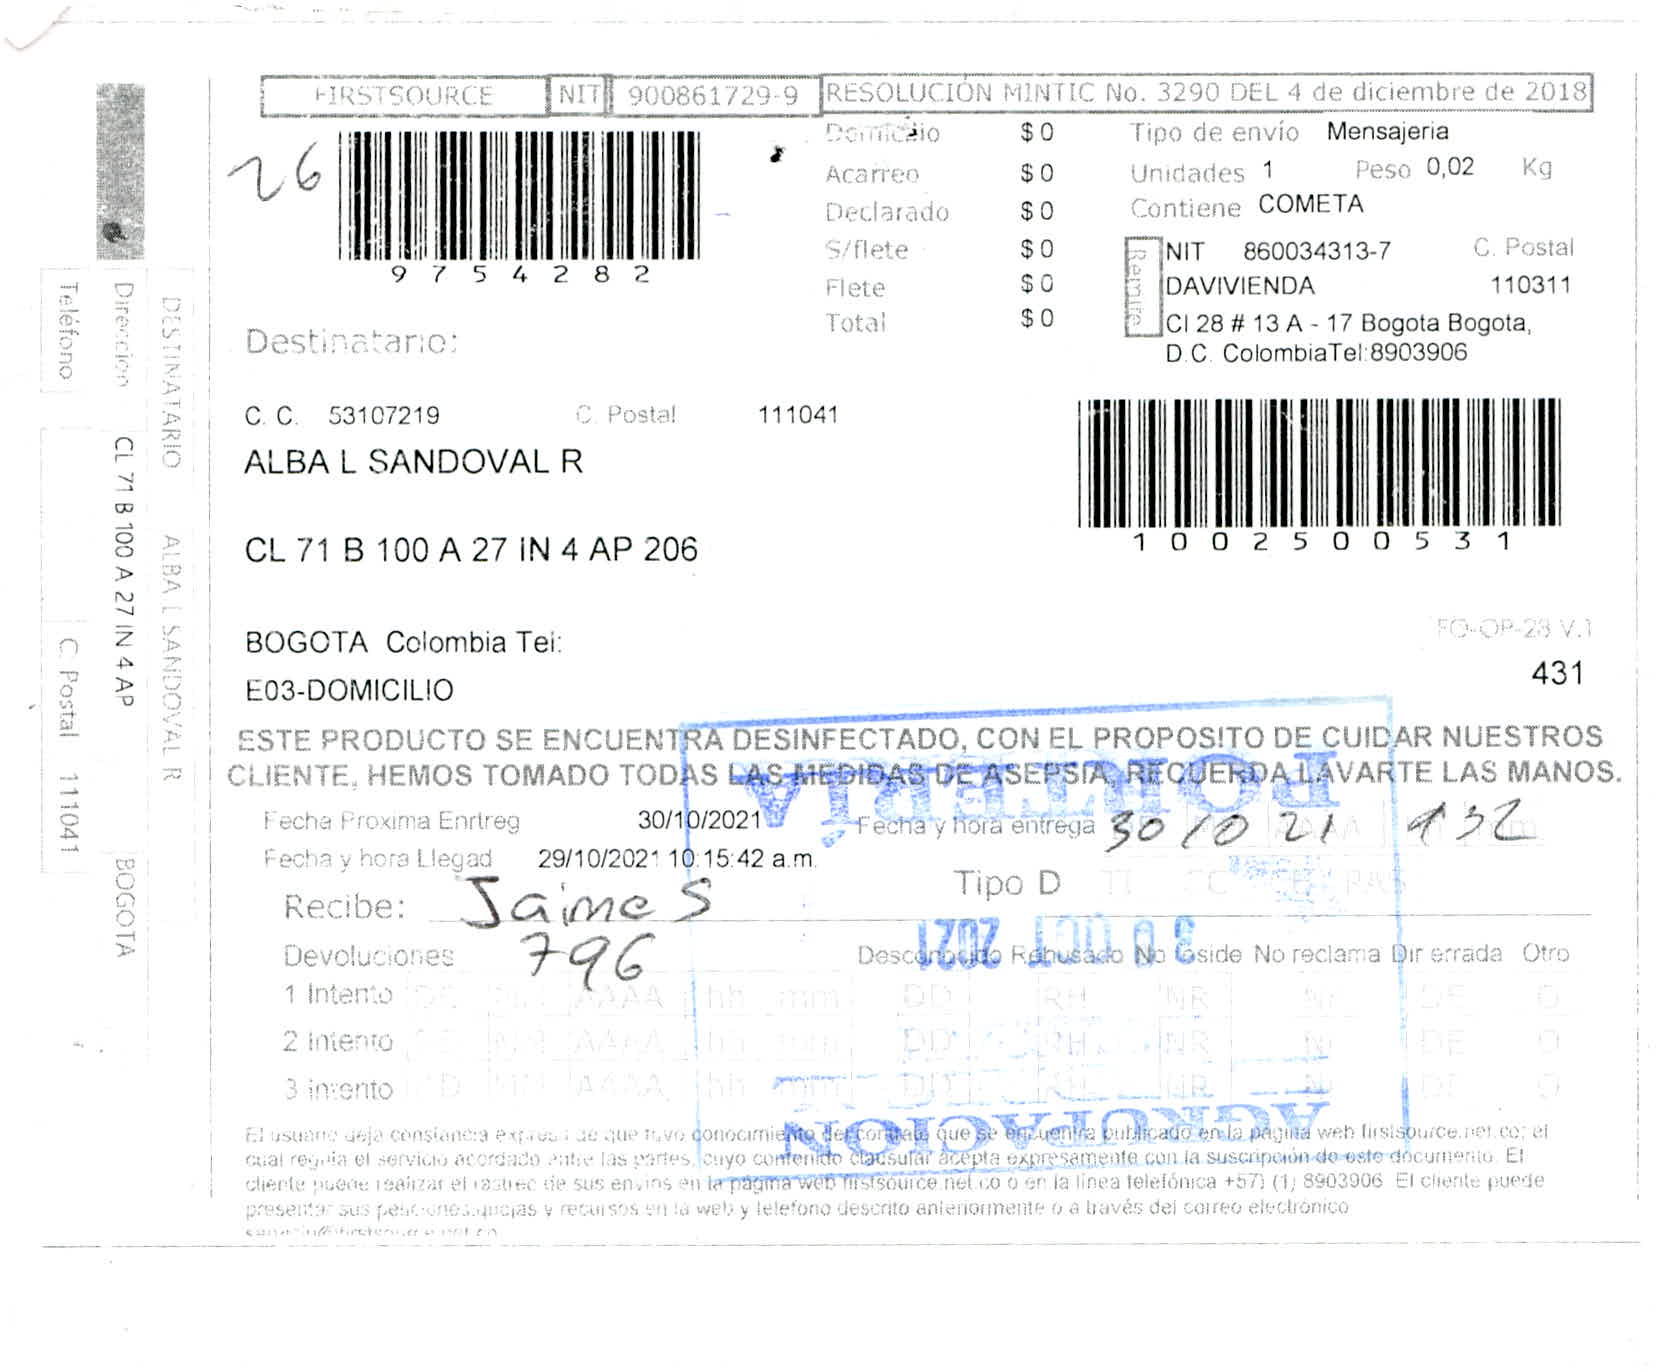 FIRSTSOURCE NIT 900861729-9 RESOLUCIÓN MINTIC No. 3290 DEL 4 de diciembre de 2018
26
9754282
Domicilio $ 0
Acarreo $ 0
Declarado $ 0
S/flete $ 0
Flete $ 0
Total $ 0
Tipo de envío Mensajeria
Unidades 1 Peso 0,02 Kg
Contiene COMETA
Remite
NIT 860034313-7 C. Postal
DAVIVIENDA 110311
Cl 28 # 13 A - 17 Bogota Bogota,
D.C. ColombiaTel:8903906
Destinatario:
C. C. 53107219 C. Postal 111041
ALBA L SANDOVAL R
1002500531
CL 71 B 100 A 27 IN 4 AP 206
BOGOTA Colombia Tel:
FO-OP-28 V.1
431
E03-DOMICILIO
ESTE PRODUCTO SE ENCUENTRA DESINFECTADO, CON EL PROPOSITO DE CUIDAR NUESTROS
CLIENTE, HEMOS TOMADO TODAS LAS MEDIDAS DE ASEPSIA, RECUERDA LAVARTE LAS MANOS.
Fecha Proxima Enrtreg 30/10/2021 Fecha y hora entrega 30 10 21 132
Fecha y hora Llegad 29/10/2021 10:15:42 a.m.
Tipo D TI CC
Recibe: Jaime S
796
Devoluciones Desconocido Rehusado No reside No reclama Dir errada Otro
1 Intento AAAA hh mm DD RH NR DE O
2 Intento AAAA hh mm DD RH NR DE O
3 Intento AAAA hh mm DD RH NR DE O
PORTERÍA
30 OCT 2021
AGRUPACION
El usuario deja constancia expresa de que tuvo conocimiento del contrato que se encuentra publicado en la página web firstsource.net.co; el
cual regula el servicio acordado entre las partes, cuyo contenido clausular acepta expresamente con la suscripción de este documento. El
cliente puede realizar el rastreo de sus envíos en la página web firstsource.net.co o en la línea telefónica +57) (1) 8903906 El cliente puede
presentar sus peticiones, quejas y recursos en la web y telefono descrito anteriormente o a través del correo electrónico
DESTINATARIO ALBA L SANDOVAL R
Dirección CL 71 B 100 A 27 IN 4 AP BOGOTA
Teléfono C. Postal 111041